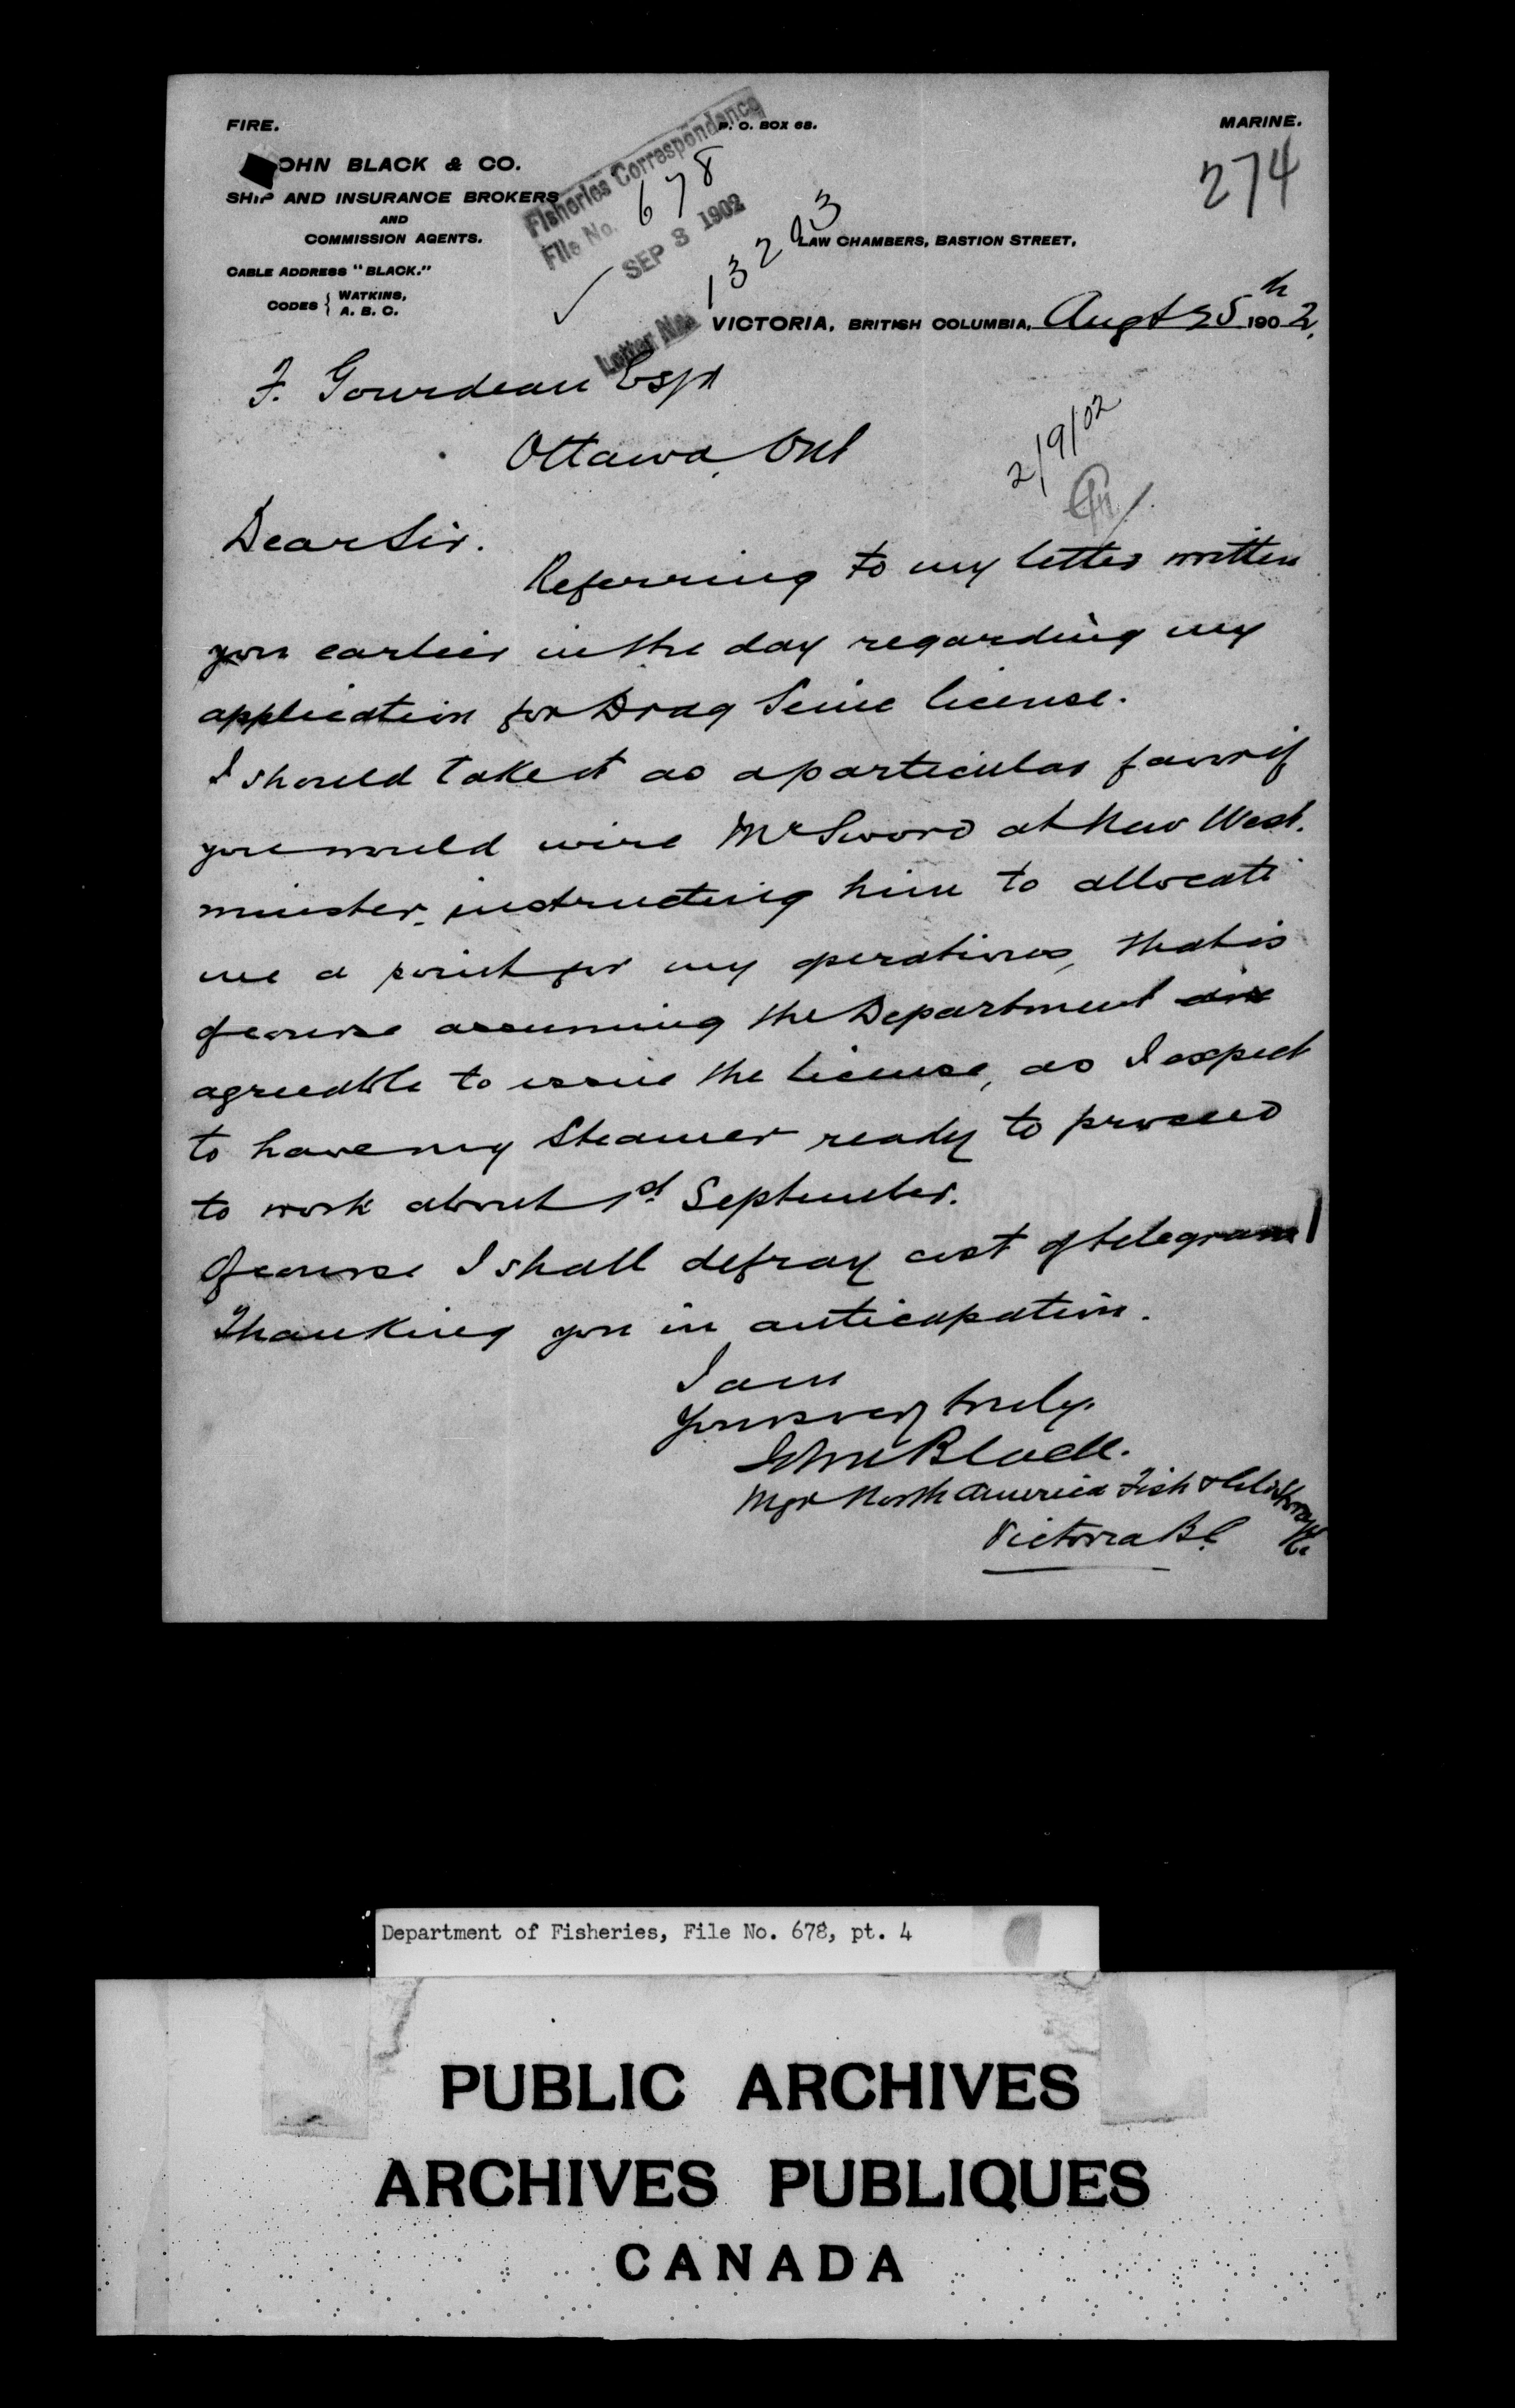 FIRE.
P. O. BOX 68.
MARINE.
274
OHN BLACK & CO.
SHIP AND INSURANCE BROKERS
AND
COMMISSION AGENTS.
CABLE ADDRESS "BLACK."
CODES { WATKINS,
A. B. C.
Fisheries Correspondence
File No. 678
SEP 3 1902
Letter No. 13293
LAW CHAMBERS, BASTION STREET,
VICTORIA, BRITISH COLUMBIA, Augt 25th 1902.
F. Gourdeau Esqr
Ottawa, Ont
2/9/02
Dear Sir.
Referring to my letter written
you earlier in the day regarding my
application for Drag Seine license.
I should take it as a particular favor if
you would wire Mr Sword at New West.
minster, instructing him to allocate
me a point for my operations, that is
of course assuming the Department
agreeable to issue the license, as I expect
to have my Steamer ready to proceed
to work about 1st September.
Of course I shall defray cost of telegram
Thanking you in anticapation.
I am
Yours very truly.
John Black.
Mgr North America Fish & Cold Storage Co.
Victoria B.C.
Department of Fisheries, File No. 678, pt. 4
PUBLIC ARCHIVES
ARCHIVES PUBLIQUES
CANADA